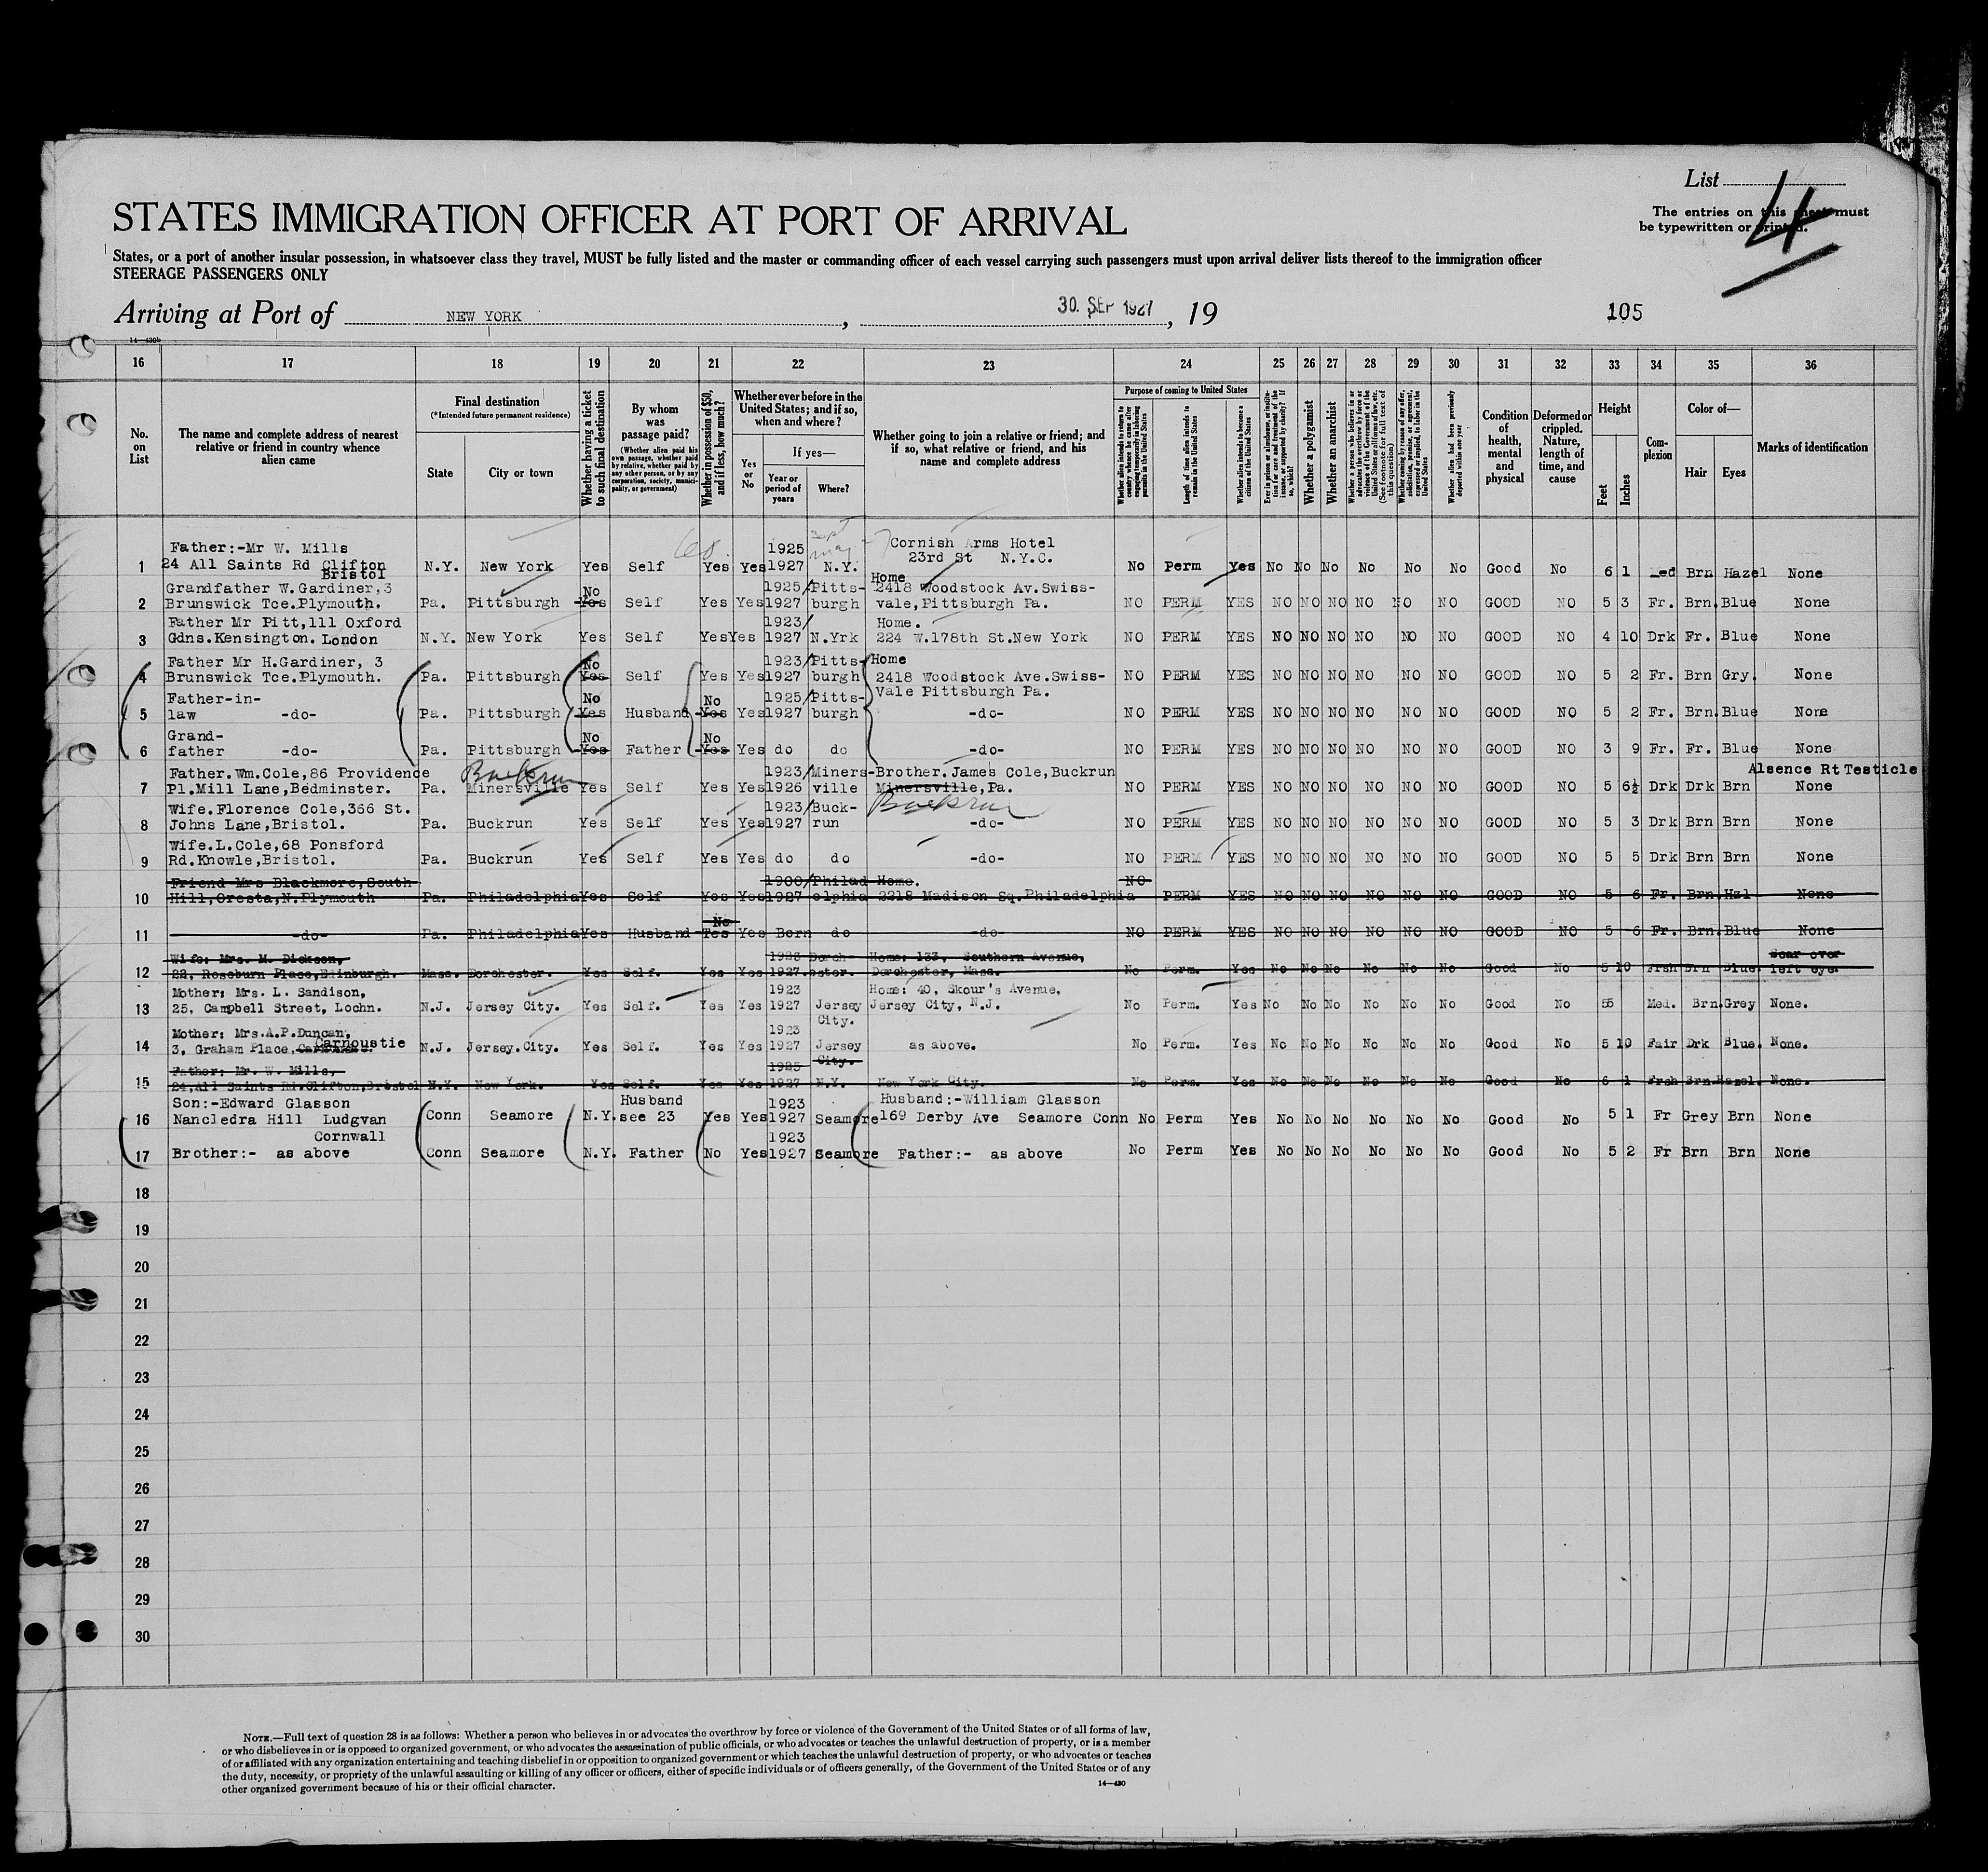 List 4
STATES IMMIGRATION OFFICER AT PORT OF ARRIVAL
The entries on this sheet must
be typewritten or printed.
States, or a port of another insular possession, in whatsoever class they travel, MUST be fully listed and the master or commanding officer of each vessel carrying such passengers must upon arrival deliver lists thereof to the immigration officer
STEERAGE PASSENGERS ONLY
Arriving at Port of NEW YORK , 30. SEP 1927 , 19
105
14—430b
16 17 18 19 20 21 22 23 24 25 26 27 28 29 30 31 32 33 34 35 36
No. on List
The name and complete address of nearest relative or friend in country whence alien came
Final destination
(*Intended future permanent residence)
State
City or town
Whether having a ticket to such final destination
By whom was passage paid?
(Whether alien paid his own passage, whether paid by relative, whether paid by any other person, or by any corporation, society, municipality, or government)
Whether in possession of $50, and if less, how much?
Whether ever before in the United States; and if so, when and where?
Yes or No
If yes—
Year or period of years
Where?
Whether going to join a relative or friend; and if so, what relative or friend, and his name and complete address
Purpose of coming to United States
Whether alien intends to return to country whence he came after engaging temporarily in laboring pursuits in the United States
Length of time alien intends to remain in the United States
Whether alien intends to become a citizen of the United States
Ever in prison or almshouse, or institution for care and treatment of the insane, or supported by charity? If so, which?
Whether a polygamist
Whether an anarchist
Whether a person who believes in or advocates the overthrow by force or violence of the Government of the United States or all forms of law, etc. (See footnote for full text of this question)
Whether coming by reason of any offer, solicitation, promise, or agreement, expressed or implied, to labor in the United States
Whether alien had been previously deported within one year
Condition of health, mental and physical
Deformed or crippled. Nature, length of time, and cause
Height
Feet
Inches
Complexion
Color of—
Hair
Eyes
Marks of identification
Father:-Mr W. Mills 1925 Cornish Arms Hotel
24 All Saints Rd Clifton 23rd St N.Y.C.
1 Bristol N.Y. New York Yes Self Yes Yes 1927 N.Y. No Perm Yes No No No No No No Good No 6 1 Brn Hazel None
Grandfather W.Gardiner,3 No 1925/Pitts- Home 2418 Woodstock Av.Swiss-
2 Brunswick Tce.Plymouth. Pa. Pittsburgh Yes Self Yes Yes 1927 burgh vale,Pittsburgh Pa. NO PERM YES NO NO NO NO NO NO GOOD NO 5 3 Fr. Brn. Blue None
Father Mr Pitt,111 Oxford 1923/ Home.
3 Gdns.Kensington. London N.Y. New York Yes Self Yes Yes 1927 N.Yrk 224 W.178th St.New York NO PERM YES NO NO NO NO NO NO GOOD NO 4 10 Drk Fr. Blue None
Father Mr H.Gardiner, 3 No 1923/Pitts- Home
4 Brunswick Tce.Plymouth. Pa. Pittsburgh Yes Self Yes Yes 1927 burgh 2418 Woodstock Ave.Swiss- NO PERM YES NO NO NO NO NO NO GOOD NO 5 2 Fr. Brn Gry. None
Father-in- No No 1925/Pitts- Vale Pittsburgh Pa.
5 law -do- Pa. Pittsburgh Yes Husband Yes Yes 1927 burgh -do- NO PERM YES NO NO NO NO NO NO GOOD NO 5 2 Fr. Brn. Blue None
Grand- No No
6 father -do- Pa. Pittsburgh Yes Father Yes Yes do do -do- NO PERM YES NO NO NO NO NO NO GOOD NO 3 9 Fr. Fr. Blue None
Father.Wm.Cole,86 Providence Buckrun 1923/Miners- Brother.James Cole,Buckrun Alsence Rt Testicle
7 Pl.Mill Lane,Bedminster. Pa. Minersville Yes Self Yes Yes 1926 ville Minersville,Pa. NO PERM YES NO NO NO NO NO NO GOOD NO 5 6½ Drk Drk Brn None
Wife.Florence Cole,366 St. 1923/Buck- Buckrun
8 Johns Lane,Bristol. Pa. Buckrun Yes Self Yes Yes 1927 run -do- NO PERM YES NO NO NO NO NO NO GOOD NO 5 3 Drk Brn Brn None
Wife.L.Cole,68 Ponsford
9 Rd.Knowle,Bristol. Pa. Buckrun Yes Self Yes Yes do do -do- NO PERM YES NO NO NO NO NO NO GOOD NO 5 5 Drk Brn Brn None
Friend Mrs Blackmore,South 1900/Philad Home. NO
10 Hill,Cresta,N.Plymouth Pa. Philadelphia Yes Self Yes Yes 1927 elphia 2218 Madison Sq.Philadelphia PERM YES NO NO NO NO NO NO GOOD NO 5 6 Fr. Brn. Hzl None
No
11 -do- Pa. Philadelphia Yes Husband Yes Yes Born do -do- NO PERM YES NO NO NO NO NO NO GOOD NO 5 6 Fr. Brn. Blue None
Wife: Mrs. M. Dickson, 1923 Dorch- Home: 133, Southern Avenue, Scar over
12 22, Roseburn Place,Edinburgh. Mass. Dorchester. Yes Self. Yes Yes 1927. ester. Dorchester, Mass. No Perm. Yes No No No No No No Good No 5 10 Frsh Brn Blue. left eye.
Mother: Mrs. L. Sandison, 1923 Home: 40, Skour's Avenue,
13 25, Campbell Street, Lochn. N.J. Jersey City. Yes Self. Yes Yes 1927 Jersey City. Jersey City, N.J. No Perm. Yes No No No No No No Good No 5 5 Med. Brn. Grey None.
Mother: Mrs.A.P.Duncan, Carnoustie 1923
14 3, Graham Place, N.J. Jersey.City. Yes Self. Yes Yes 1927 Jersey City. as above. No Perm. Yes No No No No No No Good No 5 10 Fair Drk Blue. None.
Father: Mr. W. Mills, 1925
15 24,All Saints Rd.Clifton,Bristol N.Y. New York. Yes Self. Yes Yes 1927 N.Y. New York City. No Perm. Yes No No No No No No Good No 6 1 Frsh Brn. Hazel. None.
Son:-Edward Glasson Husband 1923 Husband:-William Glasson
16 Nancledra Hill Ludgvan Conn Seamore N.Y. see 23 Yes Yes 1927 Seamore 169 Derby Ave Seamore Conn No Perm Yes No No No No No No Good No 5 1 Fr Grey Brn None
Cornwall 1923
17 Brother:- as above Conn Seamore N.Y. Father No Yes 1927 Seamore Father:- as above No Perm Yes No No No No No No Good No 5 2 Fr Brn Brn None
18
19
20
21
22
23
24
25
26
27
28
29
30
NOTE.—Full text of question 28 is as follows: Whether a person who believes in or advocates the overthrow by force or violence of the Government of the United States or of all forms of law,
or who disbelieves in or is opposed to organized government, or who advocates the assassination of public officials, or who advocates or teaches the unlawful destruction of property, or is a member
of or affiliated with any organization entertaining and teaching disbelief in or opposition to organized government or which teaches the unlawful destruction of property, or who advocates or teaches
the duty, necessity, or propriety of the unlawful assaulting or killing of any officer or officers, either of specific individuals or of officers generally, of the Government of the United States or of any
other organized government because of his or their official character.
14—430